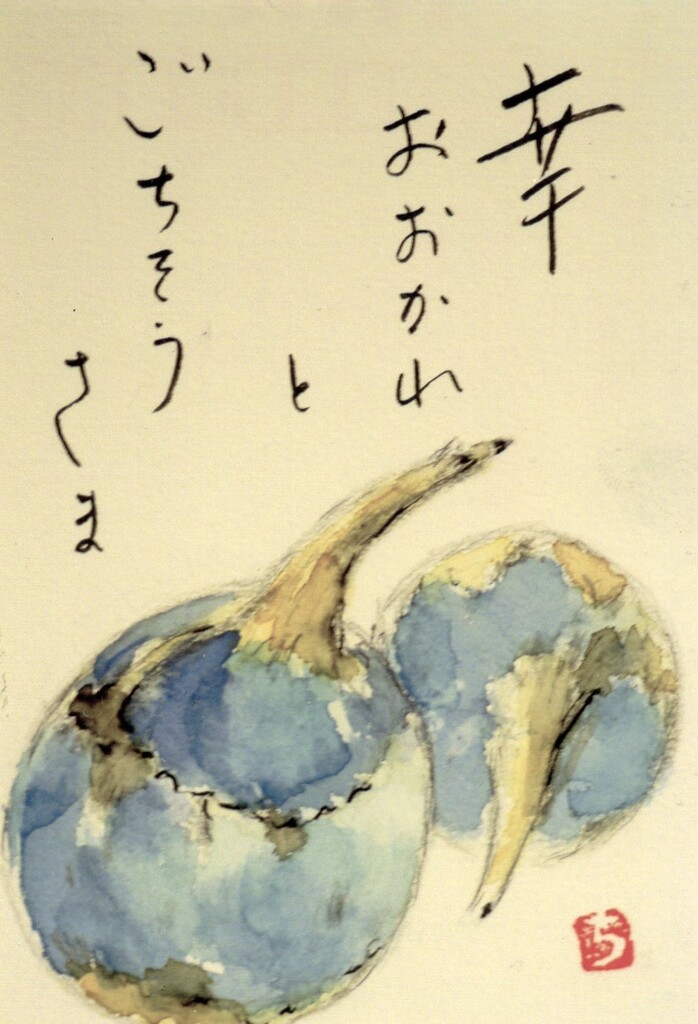 幸
おおかれ
と
ごちそう
さま